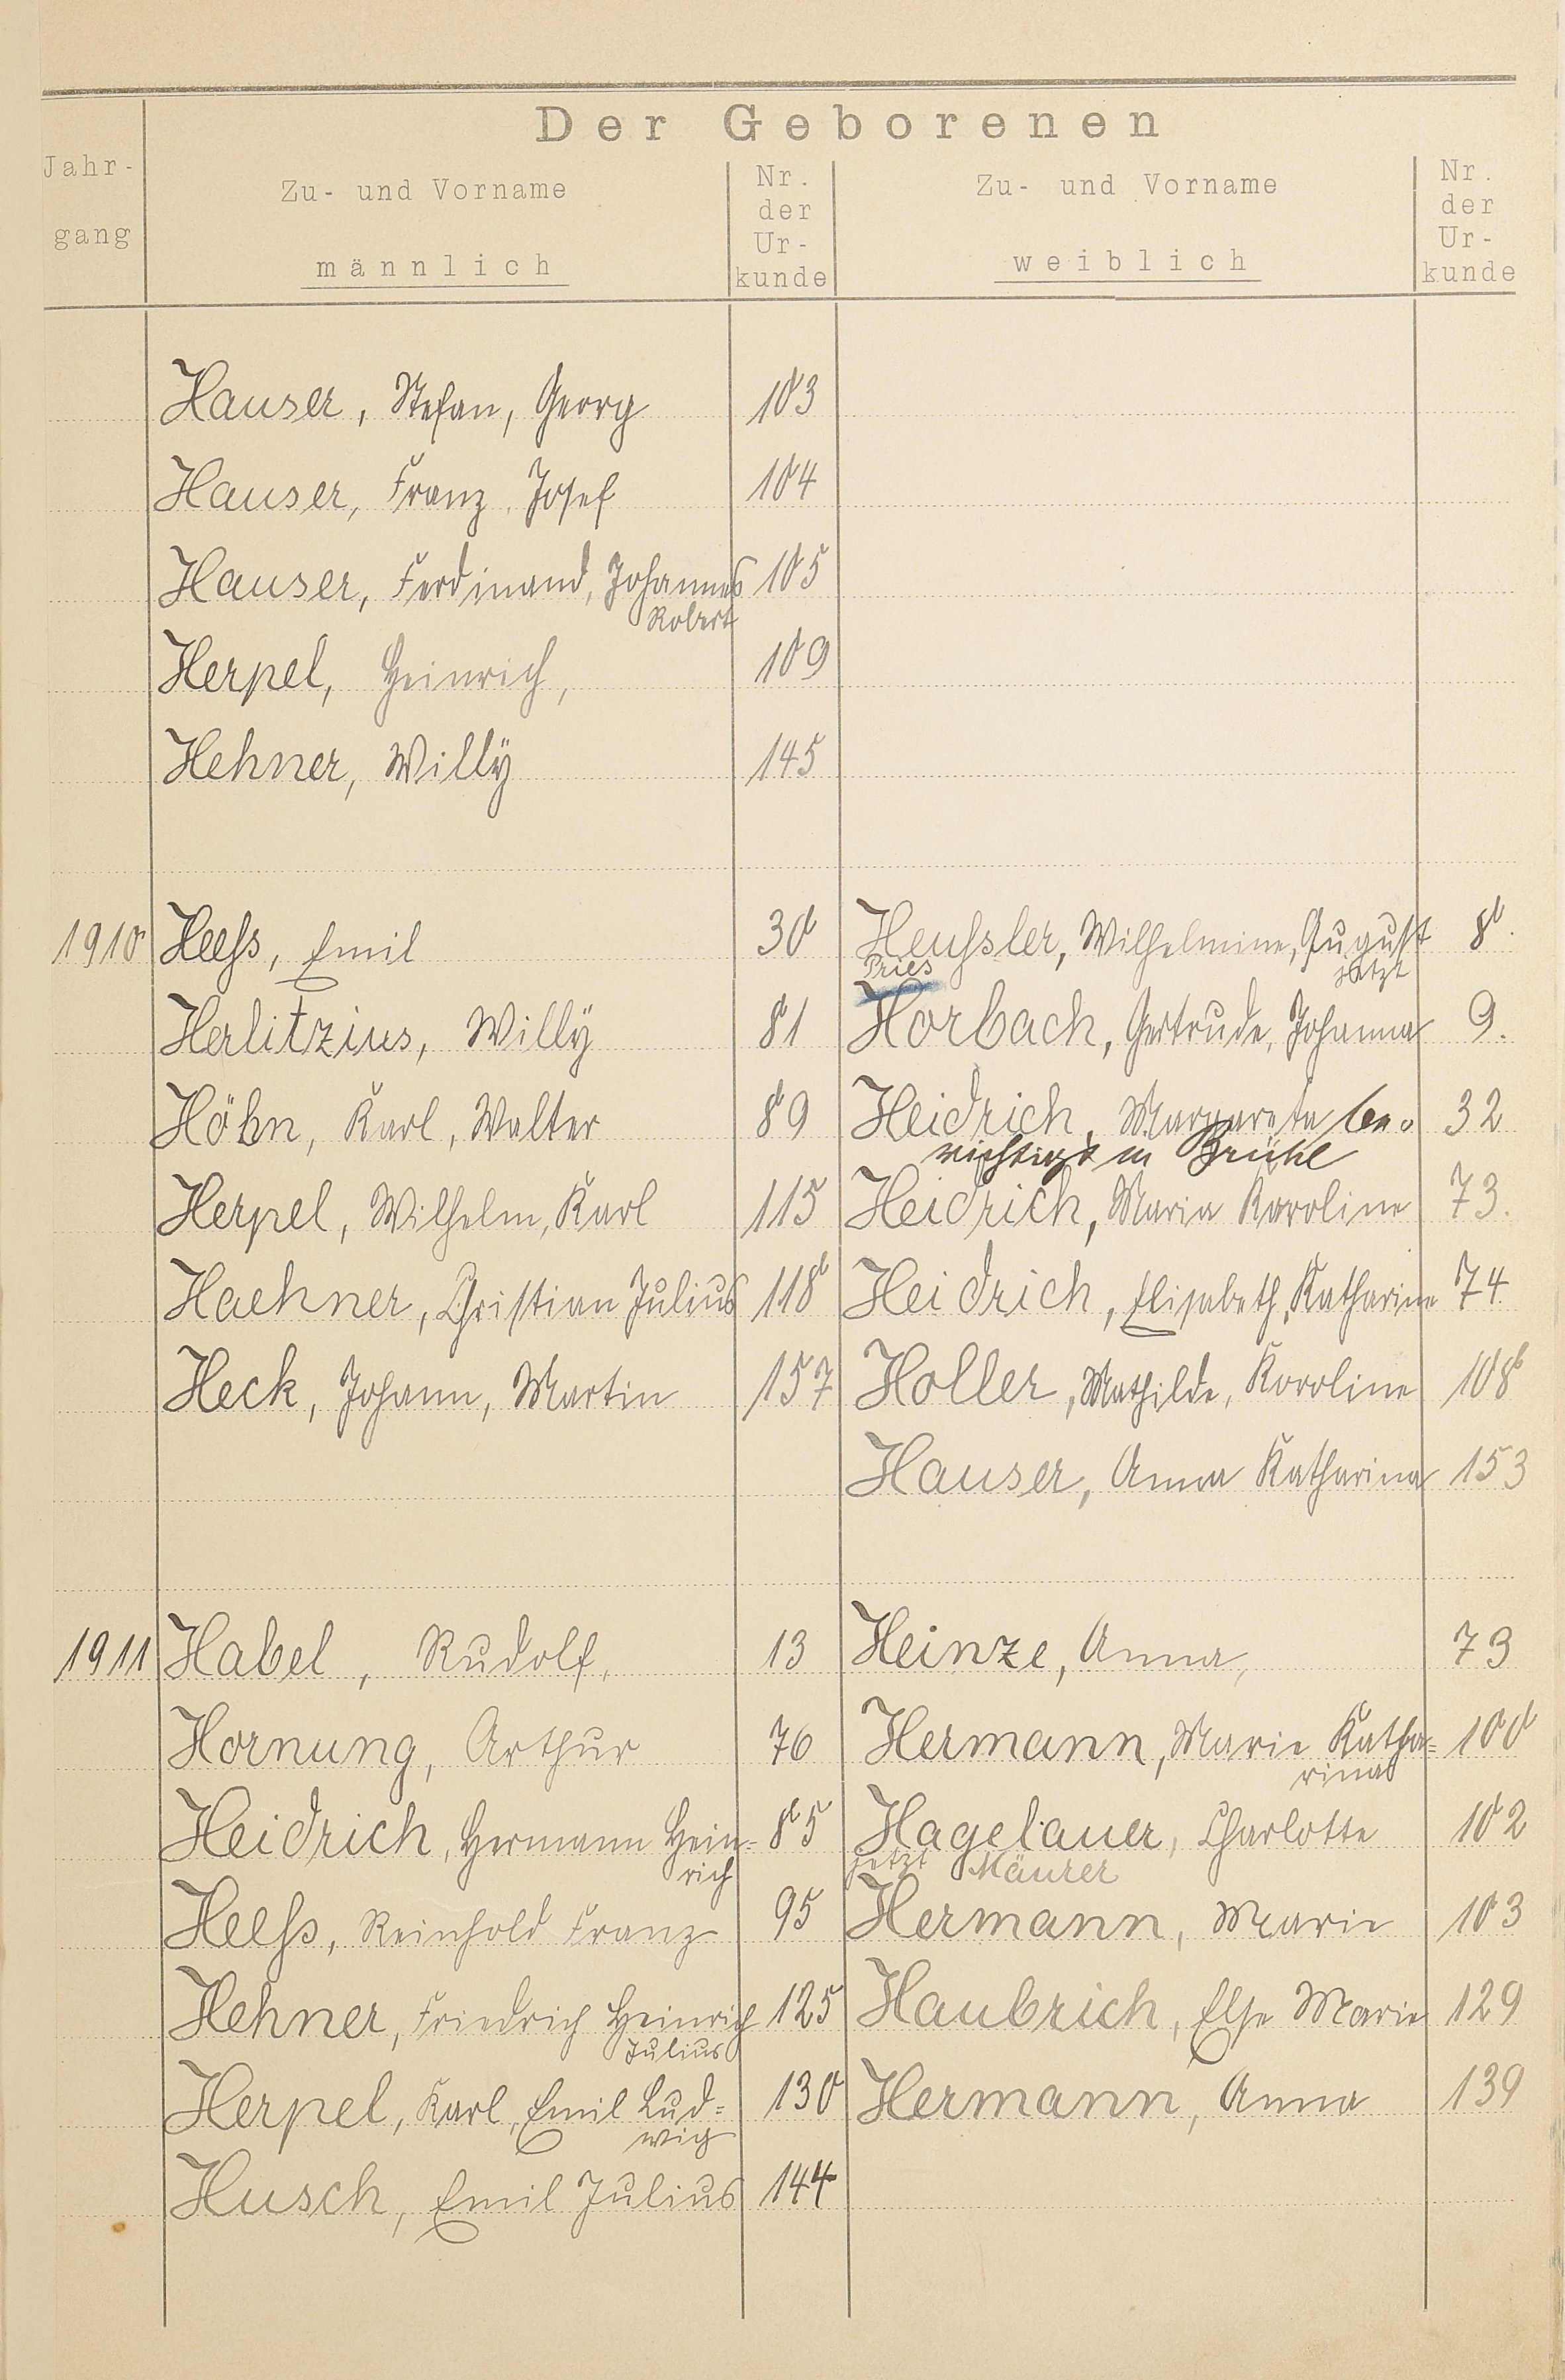 Der Geborenen
Jahr-
gang
Zu- und Vorname
männlich
Nr.
der
Ur-
kunde
Zu- und Vorname
weiblich
Nr.
der
Ur-
kunde
Hauser, Stefan, Georg 103
Hauser, Franz, Josef 104
Hauser, Ferdinand, Johannes 105
Robert
Herpel, Heinrich, 109
Hehner, Willÿ 145
1910 Heeß, Emil 30 Heußler, Wilhelmine, August 8.
Pries jetzt
Herlitzius, Willÿ 81 Horbach, Gertrude, Johanna 9.
Höhn, Karl, Walter 89 Heidrich, Margareta be- 32
richtigt in Brühl
Herpel, Wilhelm, Karl 115 Heidrich, Maria Karoline 73.
Haehner, Christian Julius 118 Heidrich, Elisabeth, Katharine 74
Heck, Johann, Martin 157 Holler, Mathilde, Karoline 108
Hauser, Anna Katharina 153
1911 Habel, Rudolf, 13 Heinze, Anna, 73
Hornung, Arthur 76 Hermann, Marie Katha= 100
rina
Heidrich, Hermann Hein= 85 Hagelauer, Charlotte 102
rich jetzt Mäurer
Heeß, Reinhold Franz 95 Hermann, Marie 103
Hehner, Friedrich Heinrich 125 Haubrich, Else Marie 129
Julius
Herpel, Karl, Emil Lud= 130 Hermann, Anna 139
wig
Husch, Emil Julius 144